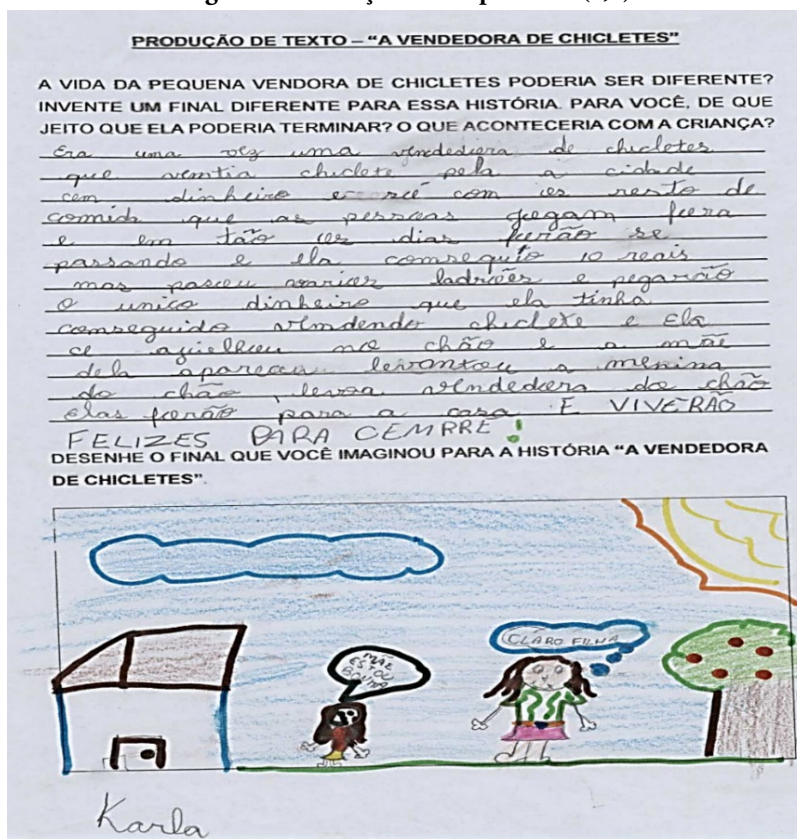 PRODUÇÃO DE TEXTO – “A VENDEDORA DE CHICLETES”
A VIDA DA PEQUENA VENDORA DE CHICLETES PODERIA SER DIFERENTE?
INVENTE UM FINAL DIFERENTE PARA ESSA HISTÓRIA. PARA VOCÊ, DE QUE
JEITO QUE ELA PODERIA TERMINAR? O QUE ACONTECERIA COM A CRIANÇA?
Era uma vez uma vendedora de chicletes
que vemtia chiclete pela a cidade
cem dinheiro com resto de
comida que as pessoas jogam fora
e em tão os dias forão se
passando e ela comseguio 10 reais
mas paceu varios ladrões e pegarão
o unico dinheiro que ela tinha
comseguido vemdendo chiclete e Ela
ce no chão e a mãe
dela apareceu levantou a menina
do chão, levou vendedora do chão
elas forão para a casa E VIVERÃO
FELIZES PARA CEMPRE!
DESENHE O FINAL QUE VOCÊ IMAGINOU PARA A HISTÓRIA “A VENDEDORA
DE CHICLETES”.
MÃE
ESTOU
BONITA
CLARO FILHA
Karla